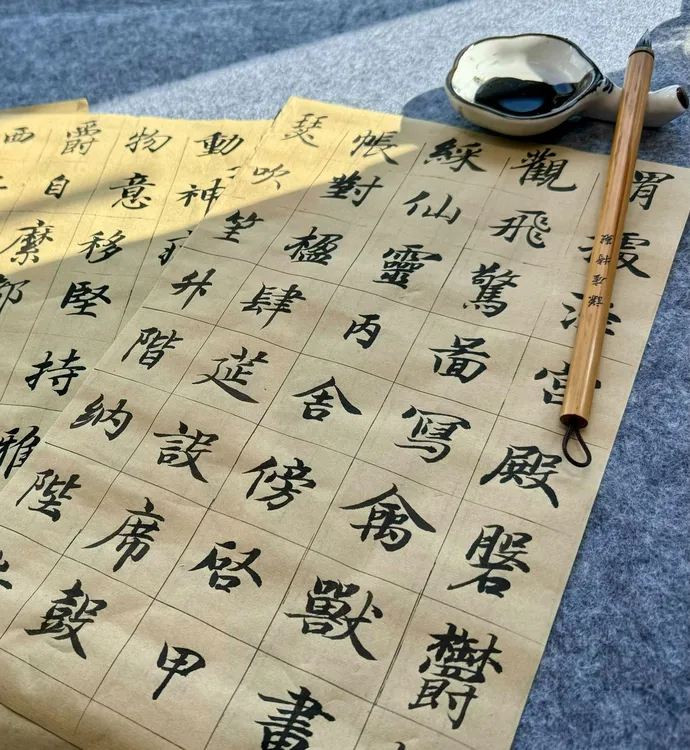 渭據涇宮殿磐鬱
觀飛驚啚寫禽獸畫
綵仙靈丙舍傍啓甲
帳對楹肆筵設席鼓
瑟吹笙升階納陛
動神
物意移堅持雅
爵自縻都
西